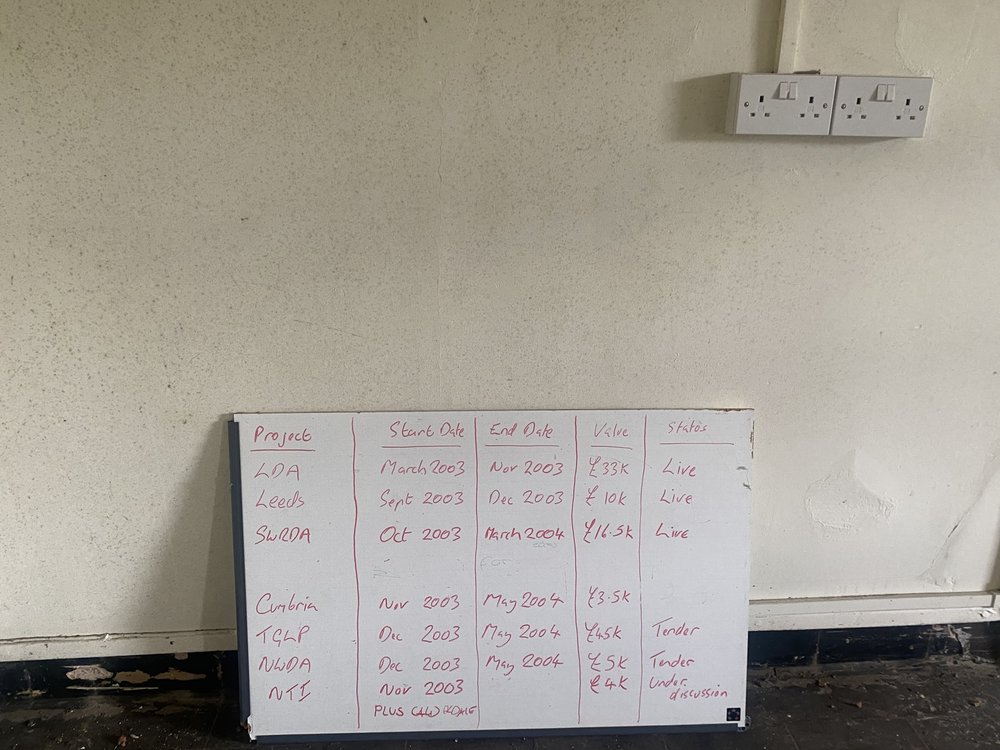 Project Start Date End Date Value Status
LDA March 2003 Nov 2003 £33K Live
Leeds Sept 2003 Dec 2003 £10K Live
SWRDA Oct 2003 March 2004 £16.5K Live
Cumbria Nov 2003 May 2004 £3.5K
TGLP Dec 2003 May 2004 £45K Tender
NWDA Dec 2003 May 2004 £5K Tender
NTI Nov 2003 £4K Under discussion
PLUS